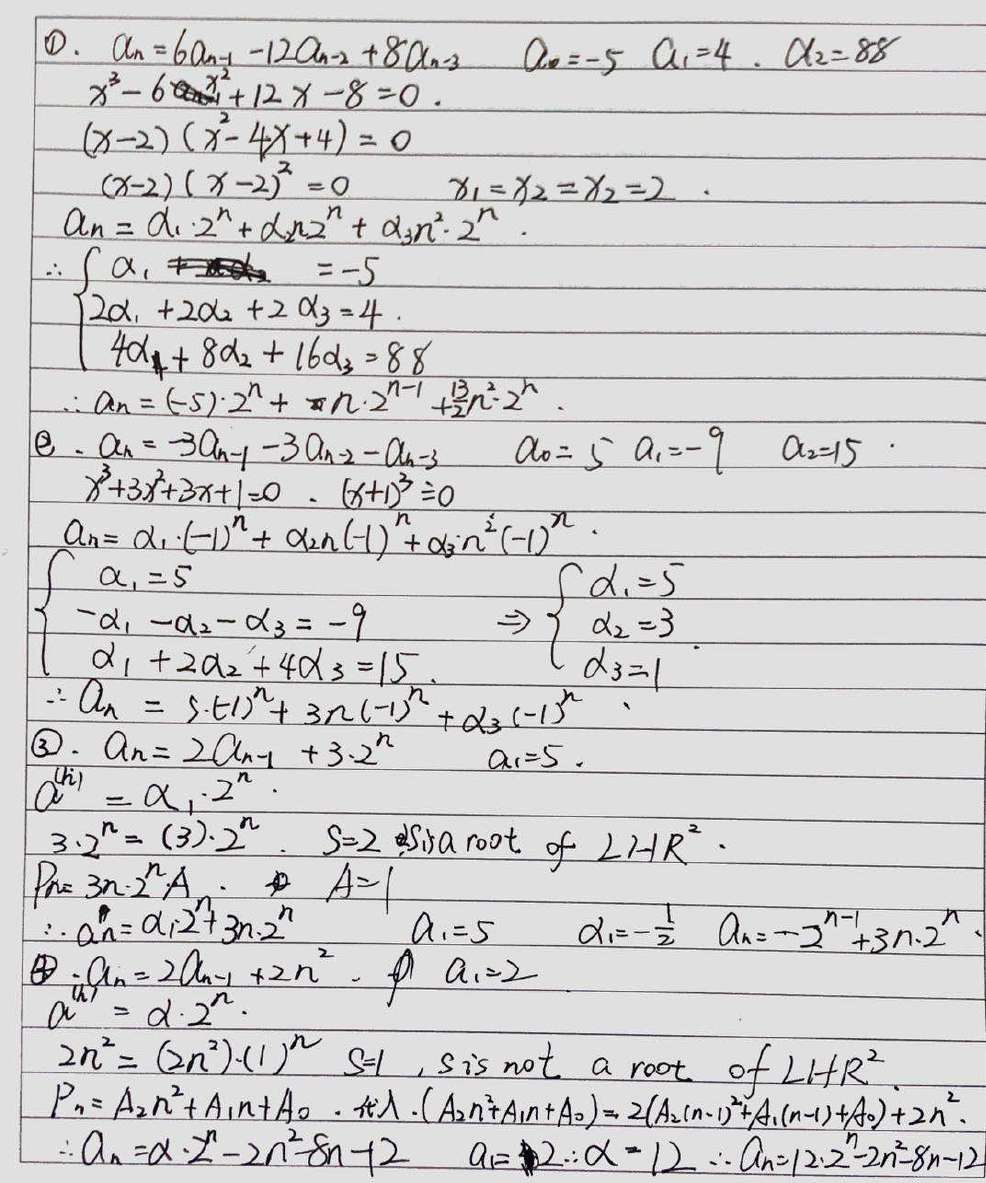 ①. aₙ=6aₙ₋₁-12aₙ₋₂+8aₙ₋₃ a₀=-5 a₁=4. a₂=88
x³-6x²+12x-8=0.
(x-2)(x²-4x+4)=0
(x-2)(x-2)²=0 x₁=x₂=x₂=2.
aₙ=α₁·2ⁿ+α₂n2ⁿ+α₃n²·2ⁿ.
∴ { α₁ =-5
2α₁+2α₂+2α₃=4.
4α₁+8α₂+16α₃=88
∴aₙ=(-5)·2ⁿ+n·2ⁿ⁻¹+13/2n²·2ⁿ.
②. aₙ=-3aₙ₋₁-3aₙ₋₂-aₙ₋₃ a₀=5 a₁=-9 a₂=15.
x³+3x²+3x+1=0. (x+1)³=0
aₙ=α₁·(-1)ⁿ+α₂n(-1)ⁿ+α₃·n²(-1)ⁿ.
{ α₁=5 { α₁=5
-α₁-α₂-α₃=-9 ⇒ α₂=3
α₁+2α₂+4α₃=15. α₃=1.
∴aₙ=5·(-1)ⁿ+3n(-1)ⁿ+α₃(-1)ⁿ.
③. aₙ=2aₙ₋₁+3·2ⁿ a₁=5.
a⁽ʰ⁾=α₁·2ⁿ.
3·2ⁿ=(3)·2ⁿ. S=2 S is a root of LHR².
Pₙ=3n·2ⁿ·A. A=1
∴aₙ=α₁·2ⁿ+3n·2ⁿ a₁=5 α₁=-1/2 aₙ=-2ⁿ⁻¹+3n·2ⁿ.
④.aₙ=2aₙ₋₁+2n². a₁=2
a⁽ʰ⁾=α·2ⁿ.
2n²=(2n²)·(1)ⁿ S=1, s is not a root of LHR².
Pₙ=A₂n²+A₁n+A₀. 代入.(A₂n²+A₁n+A₀)=2(A₂(n-1)²+A₁(n-1)+A₀)+2n².
∴aₙ=α·2ⁿ-2n²-8n-12 a₁=2∴α=12∴aₙ=12·2ⁿ-2n²-8n-12